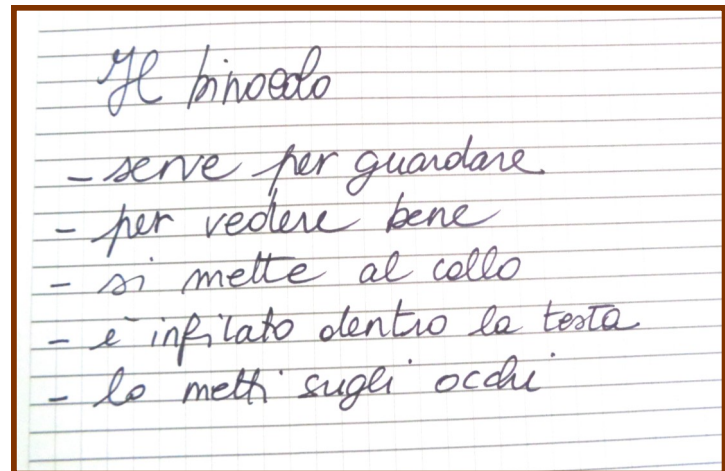 Il binocolo
- serve per guardare
- per vedere bene
- si mette al collo
- è infilato dentro la testa
- lo metti sugli occhi